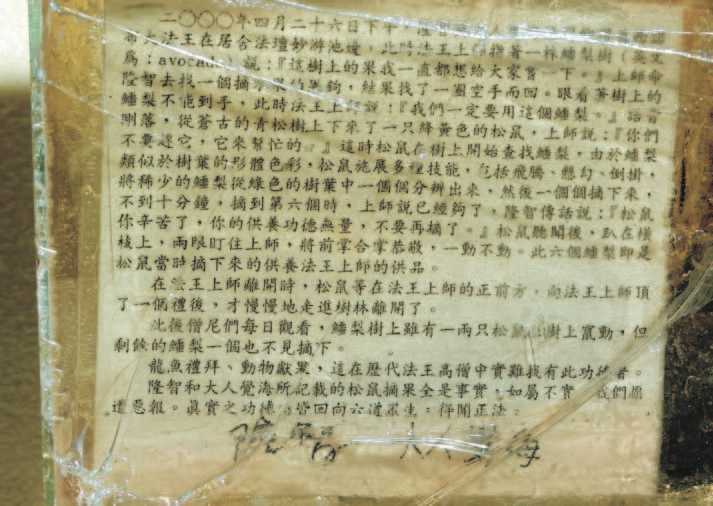 二〇〇〇年四月二十六日下午
大法王在居舍法壇妙游池邊，此時法王上師指著一株鱷梨樹（英文
為：avocado）說：『這樹上的果我一直都想給大家嘗一下。』上師命
隆智去找一個摘水果的 鉤，結果找了一圈空手而回。眼看著樹上的
鱷梨不能到手，此時法王上師說：『我們一定要用這個鱷梨。』話音
剛落，從蒼古的青松樹上下來了一只絳黃色的松鼠，上師說：『你們
不要趕它，它來幫忙的。』這時松鼠在樹上開始查找鱷梨，由於鱷梨
類似於樹葉的形體色彩，松鼠施展多種技能，包括飛騰、懸勾、倒掛，
將稀少的鱷梨從綠色的樹葉中一個個分辨出來，然後一個個摘下來，
不到十分鐘，摘到第六個時，上師說已經夠了，隆智傳話說：『松鼠
你辛苦了，你的供養功德無量，不要再摘了。』松鼠聽聞後，趴在橫
枝上，兩眼盯住上師，將前掌合掌恭敬，一動不動。此六個鱷梨即是
松鼠當時摘下來的供養法王上師的供品。
在法王上師離開時，松鼠等在法王上師的正前方，向法王上師頂
了一個禮後，才慢慢地走進樹林離開了。
此後僧尼們每日觀看，鱷梨樹上雖有一兩只松鼠 樹上竄動，但
剩餘的鱷梨一個也不見摘下。
龍魚禮拜、動物獻眾，這在歷代法王高僧中實難找有此功德者。
隆智和大人覺海所記載的松鼠摘果全是事實，如屬不實，我們願
遭惡報。真實之功德，皆回向六道眾生，得聞正法。
隆智 大人覺海